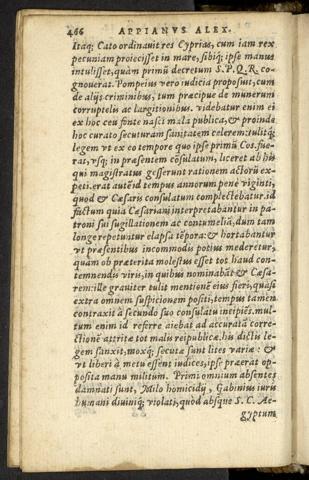 466 APPIANVS ALEX.
Itaq; Cato ordinauit res Cyprias, cum iam rex
pecuniam proiecisset in mare, sibiq; ipse manus
intulisset, quàm primũ decretum S.P.Q.R. co-
gnouerat. Pompeius vero iudicia proposuit, cum
de alijs criminibus, tum præcipue de munerum
corruptelis ac largitionibus. videbatur enim ei
ex hoc ceu fonte nasci mala publica, & proinde
hoc curato secuturam sanitatem celerem: tulitq;
legem vt ex eo tempore quo ipse primũ Cos. fue-
rat, vsq; in præsentem cōsulatum, liceret ab his
qui magistratus gesserunt rationem actorũ ex-
peti. erat autẽ id tempus annorum pene viginti,
quod & Cæsaris consulatum complectebatur. id
fictum quia Cæsariani interpretabantur in pa-
troni sui sugillationem ac contumeliã, dum tam
longe repetuntur elapsa tẽpora: & hortabantur
vt præsentibus incommodis potius mederetur,
quàm ob præterita molestus esset tot haud con-
temnendis viris, in quibus nominabãt & Cæsa-
rem: ille grauiter tulit mentionẽ eius fieri, quasi
extra omnem suspicionem positi, tempus tamen
contraxit à secundo suo consulatu incipiẽs. mul-
tum enim id referre aiebat ad accuratã corre-
ctionē attritæ tot malis reipublicæ. his dictis le-
gem sanxit, moxq; secutæ sunt lites variæ: &
vt liberi à metu essent iudices, ipse præerat op-
posita manu militum. Primi omnium absentes
damnati sunt, Milo homicidij, Gabinius iuris
humani diuiniq; violati, quod absque S. C. Ae-
gyptum